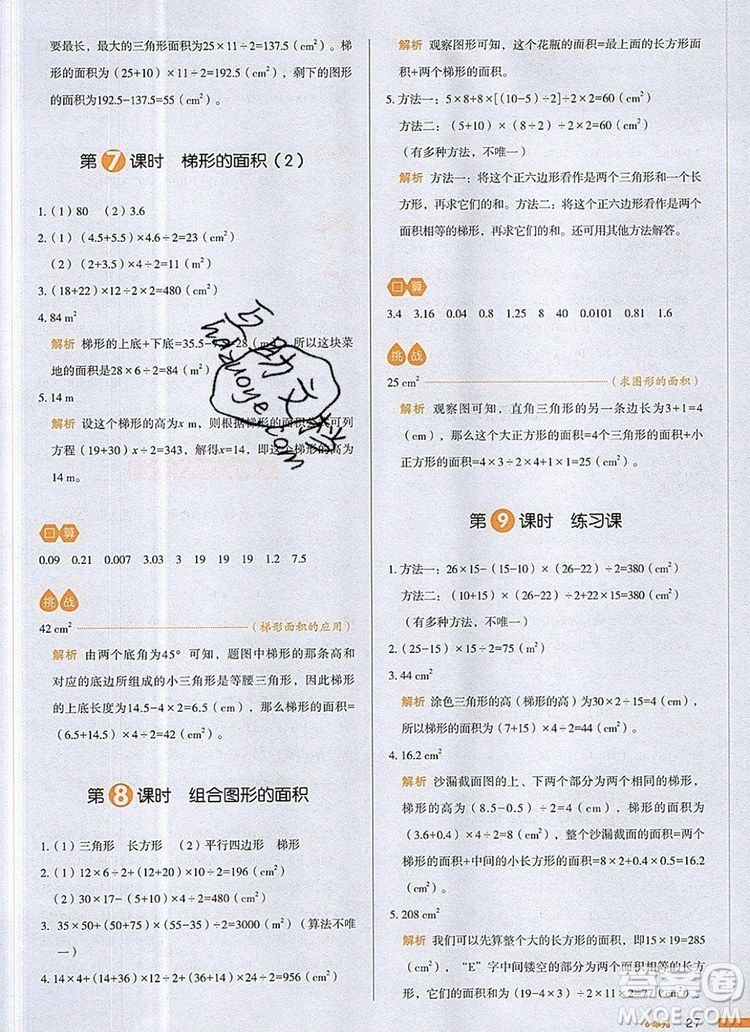 要最长，最大的三角形面积为25×11÷2=137.5（cm²）。梯
形的面积（25+10）×11÷2=192.5（cm²），剩下的图形
的面积为192.5-137.5=55（cm²）。
第7课时 梯形的面积（2）
1.（1）80 （2）3.6
2.（1）（4.5+5.5）×4.6÷2=23（cm²）
（2）（2+3）×4÷2=10（cm²）
3.（18+22）×12÷2×2=480（cm²）
4. 84 m²
解析 梯形的上底+下底=35.5-7.
28（m），所以这块菜
地的面积=28×6÷2=84（m²）。
5. 14 m
解析 设这个梯形的高为x m，则根据梯形的面积公式可列
方程（19+30）x÷2=343，解得x=14，即这个梯形的高为
14 m。
口算
0.09 0.21 0.007 3.03 3 19 19 19 1.2 7.5
挑战
42 cm² （梯形面积的应用）
解析 由两个底角为45°可知，题图中梯形的那条高和
对应的底边所组成的小三角形是等腰三角形，因此梯形
的高为14.5-4×2=6.5（cm），那么梯形的面积=
（6.5+14.5）×4÷2=42（cm²）。
第8课时 组合图形的面积
1.（1）三角形 长方形 （2）平行四边形 梯形
2.（1）12×6÷2+（12+20）×10÷2=196（cm²）
（2）30×17-（10+20）×5÷2=435（cm²）
3. 35×50+（50+75）×（55-35）÷2=3000（m²）（算法不唯
一）
4. 14×4+（14+36）×12÷2+（14+36）×24÷2=956（cm²）
解析 观察图形可知，这个花瓶的面积=上面的长方形面
积+两个梯形的面积。
5. 方法一：5×8+8×[（10-5）÷2]÷2×2=60（cm²）
方法二：（5+10）×（8÷2）÷2×2=60（cm²）
（有多种方法，不唯一）
解析 方法一：将这个正六边形看作是两个三角形和一个长
方形，再求它们的和。方法二：将这个正六边形看作是两个
面积相等的梯形，再求它们的和。还可以用其他方法解答。
口算
3.4 3.16 0.04 0.8 1.25 1.3 8 40 0.0101 0.81 1.6
挑战
25 cm² （求图形的面积）
解析 观察题图可知，直角三角形的另一条边长为3+1=4
（cm），那么这个大正方形的面积=4个三角形的面积+小正
方形的面积=4×3÷2×4+1×1=25（cm²）。
第9课时 练习课
1. 方法一：26×15-（15-10）×（26-22）÷2=380（cm²）
方法二：（10+15）×（26-22）÷2+22×15=380（cm²）
2.（25-15）×15÷2=75（m²）
3. 44 cm²
解析 涂色三角形的高（梯形的高）为30×2÷15=4（cm），
所以梯形的面积为（7+15）×4÷2=44（cm²）。
4. 16.2 cm²
解析 沙漏截面图的上、下两个部分为两个相同的梯形，
梯形的高为（8.5-0.5）÷2=4（cm），梯形的面积为
（3.6+0.4）×4÷2=8（cm²），整个沙漏截面的面积=两个
梯形的面积+中间的小长方形的面积=8×2+0.4×0.5=16.2
（cm²）。
5. 208 cm²
解析 我们可以先算整个大的长方形的面积，即15×19=285
（cm²），“E”字中间镂空的部分为两个长方形，每个长方
形的面积为（19-4×3）÷2×（15-4）=38.5（cm²），
27